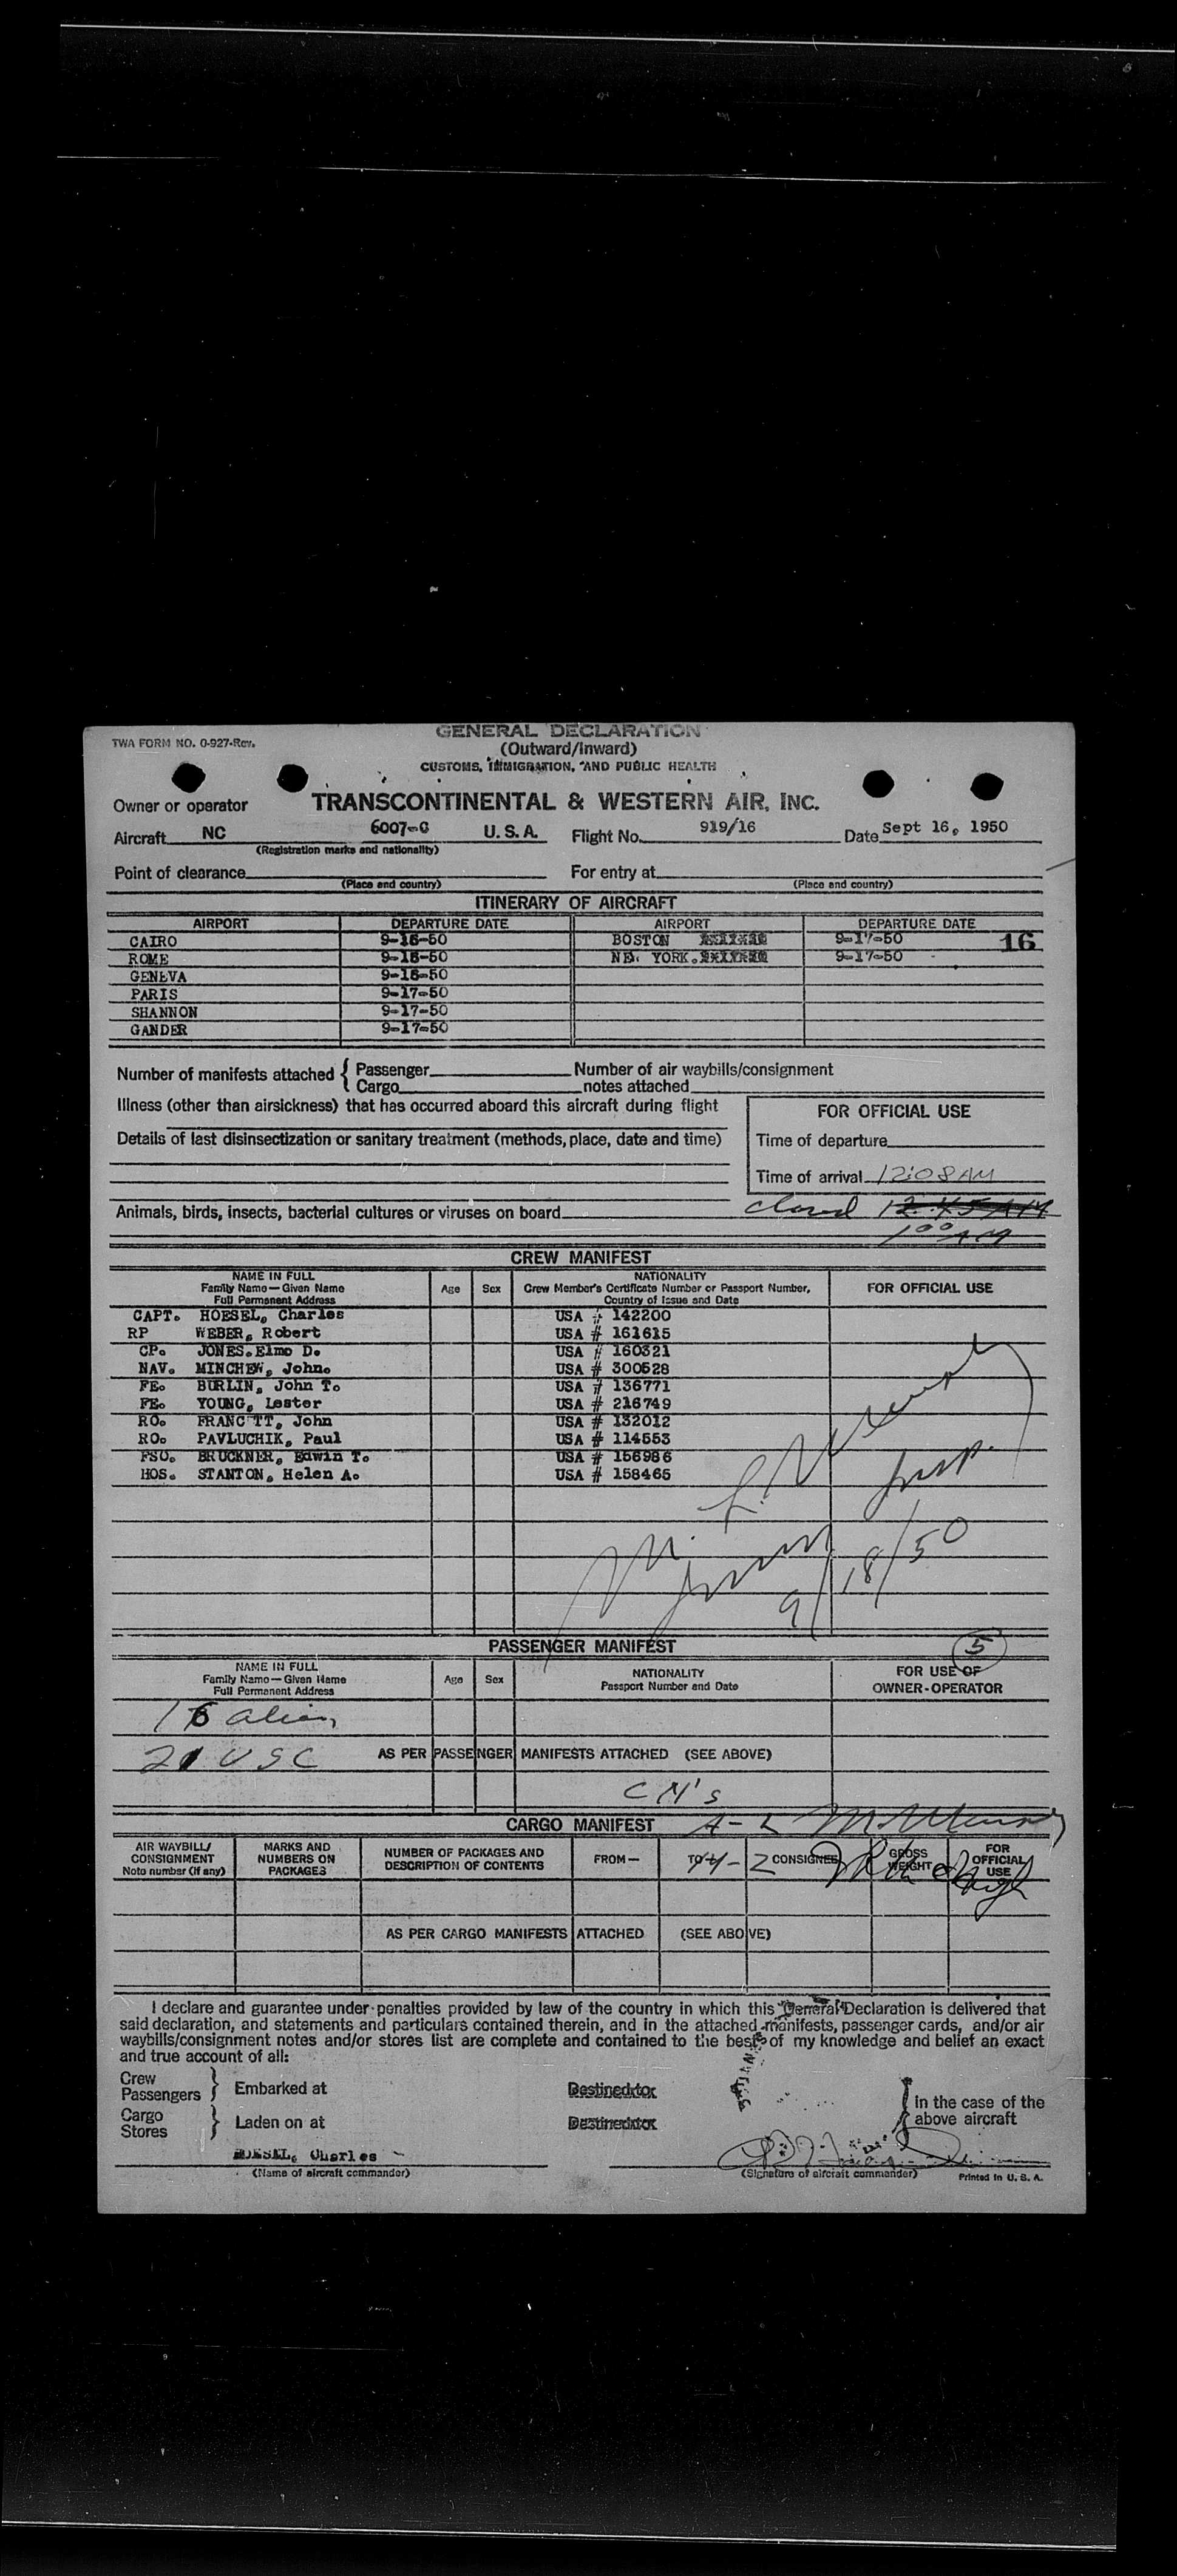 GENERAL DECLARATION
TWA FORM NO. 0-927-Rev.
(Outward/Inward)
CUSTOMS, IMMIGRATION, AND PUBLIC HEALTH
Owner or operator TRANSCONTINENTAL & WESTERN AIR, INC.
Aircraft NC 6007-C U.S.A. Flight No. 919/16 Date Sept 16, 1950
(Registration marks and nationality)
Point of clearance For entry at
(Place and country) (Place and country)
ITINERARY OF AIRCRAFT
AIRPORT DEPARTURE DATE AIRPORT DEPARTURE DATE
CAIRO 9-16-50 BOSTON 9-17-50 16
ROME 9-16-50 NEW YORK. 9-17-50
GENEVA 9-16-50
PARIS 9-17-50
SHANNON 9-17-50
GANDER 9-17-50
Number of manifests attached { Passenger Number of air waybills/consignment
Cargo notes attached
Illness (other than airsickness) that has occurred aboard this aircraft during flight
FOR OFFICIAL USE
Details of last disinsectization or sanitary treatment (methods, place, date and time)
Time of departure
Time of arrival 12:08 AM
Animals, birds, insects, bacterial cultures or viruses on board closed 12:45 AM
1 00 AM
CREW MANIFEST
NAME IN FULL NATIONALITY
Family Name—Given Name Age Sex Crew Member's Certificate Number or Passport Number, FOR OFFICIAL USE
Full Permanent Address Country of Issue and Date
CAPT. HOESEL, Charles USA # 142200
RP WEBER, Robert USA # 161615
CP. JONES. Elmo D. USA # 160321
NAV. MINCHEW, John. USA # 300528
FE. BURLIN, John T. USA # 136771
FE. YOUNG, Lester USA # 216749
RO. John USA # 132012
RO. PAVLUCHIK, Paul USA # 114553
FSO. BRUCKNER, Edwin T. USA # 156986
HOS. STANTON, Helen A. USA # 158465
M. L.
Insp.
9/18/50
PASSENGER MANIFEST 5
NAME IN FULL NATIONALITY FOR USE OF
Family Name—Given Name Age Sex Passport Number and Date OWNER-OPERATOR
Full Permanent Address
alien
USC AS PER PASSENGER MANIFESTS ATTACHED (SEE ABOVE)
CM's
CARGO MANIFEST A-L
AIR WAYBILL/ MARKS AND NUMBER OF PACKAGES AND FROM— TO— CONSIGNEE GROSS FOR
CONSIGNMENT NUMBERS ON DESCRIPTION OF CONTENTS WEIGHT OFFICIAL
Note number (if any) PACKAGES USE
M-Z
AS PER CARGO MANIFESTS ATTACHED (SEE ABOVE)
I declare and guarantee under penalties provided by law of the country in which this General Declaration is delivered that
said declaration, and statements and particulars contained therein, and in the attached manifests, passenger cards, and/or air
waybills/consignment notes and/or stores list are complete and contained to the best of my knowledge and belief an exact
and true account of all:
Crew
Passengers } Embarked at Destined to
Cargo
Stores } Laden on at Destined to
In the case of the
above aircraft
HOESEL, Charles
(Name of aircraft commander) (Signature of aircraft commander) Printed in U. S. A.